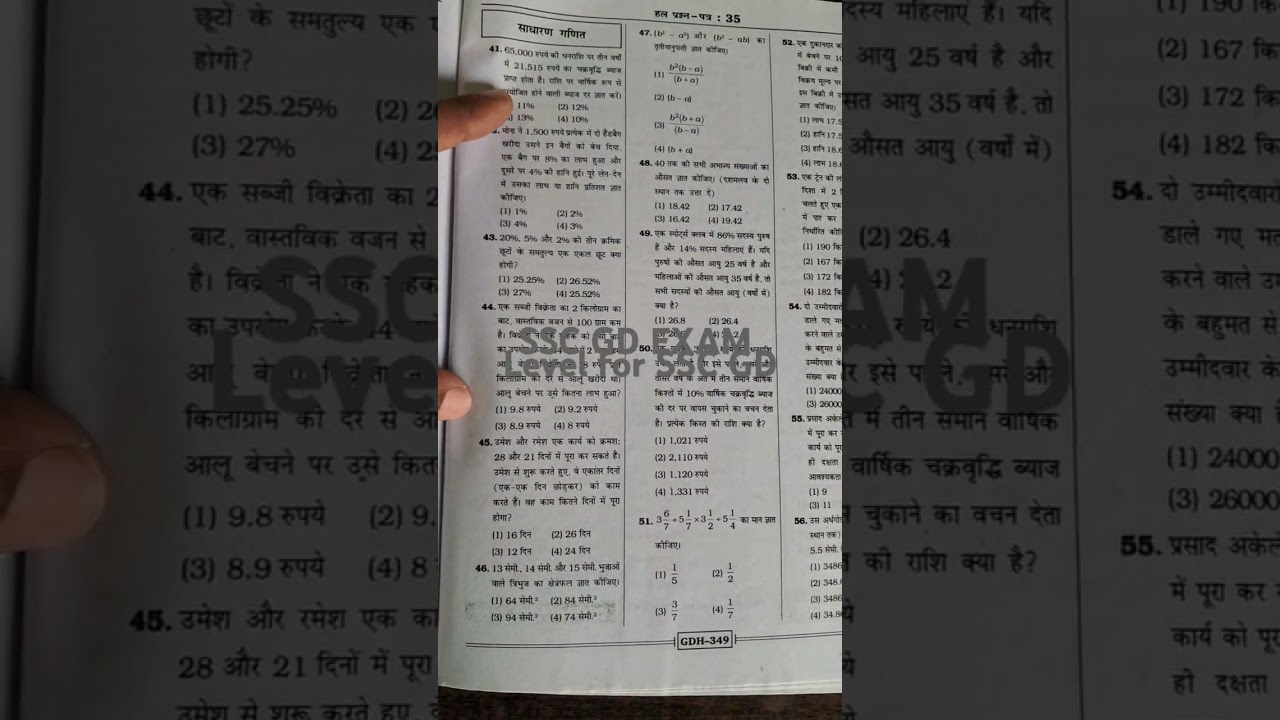 हल प्रश्न-पत्र : 35
साधारण गणित
41. 65,000 रुपये की धनराशि पर तीन वर्षों
में 21,515 रुपये का चक्रवृद्धि ब्याज
प्राप्त होता है। राशि पर वार्षिक रूप से
होने वाली ब्याज दर ज्ञात करें।
11% (2) 12%
13% (4) 10%
मोना ने 1,500 रुपये प्रत्येक में दो हैंडबैग
खरीदा उसने इन बैगों को बेच दिया,
एक बैग पर 8% का लाभ हुआ और
दूसरे पर 4% की हानि हुई। पूरे लेन-देन
में उसका लाभ या हानि प्रतिशत ज्ञात
कीजिए।
(1) 1% (2) 2%
(3) 4% (4) 3%
43. 20%, 5% और 2% की तीन क्रमिक
छूटों के समतुल्य एक एकल छूट क्या
होगी?
(1) 25.25% (2) 26.52%
(3) 27% (4) 25.52%
44. एक सब्जी विक्रेता का 2 किलोग्राम का
बाट, वास्तविक वजन से 100 ग्राम कम
है।
किलोग्राम की दर से आलू खरीदा था।
आलू बेचने पर उसे कितना लाभ हुआ?
(1) 9.8 रुपये (2) 9.2 रुपये
(3) 8.9 रुपये (4) 8 रुपये
45. उमेश और रमेश एक कार्य को क्रमश:
28 और 21 दिनों में पूरा कर सकते हैं।
उमेश से शुरू करते हुए, वे एकांतर दिनों
(एक-एक दिन छोड़कर) को काम
करते हैं। वह काम कितने दिनों में पूरा
होगा?
(1) 16 दिन (2) 26 दिन
(3) 12 दिन (4) 24 दिन
46. 13 सेमी., 14 सेमी. और 15 सेमी. भुजाओं
वाले त्रिभुज का क्षेत्रफल ज्ञात कीजिए।
(1) 64 सेमी.² (2) 84 सेमी.²
(3) 94 सेमी.² (4) 74 सेमी.²
47. (b² - a²) और (b² - ab) का
तृतीयानुपाती ज्ञात कीजिए।
(1) b²(b-a)/(b+a)
(2) (b-a)
(3) b²(b+a)/(b-a)
(4) (b+a)
48. 40 तक की सभी अभाज्य संख्याओं का
औसत ज्ञात कीजिए। (दशमलव के दो
स्थान तक उत्तर दें)
(1) 18.42 (2) 17.42
(3) 16.42 (4) 19.42
49. एक स्पोर्ट्स क्लब में 86% सदस्य पुरुष
हैं और 14% सदस्य महिलाएं हैं। यदि
पुरुषों की औसत आयु 25 वर्ष है और
महिलाओं की औसत आयु 35 वर्ष है, तो
सभी सदस्यों की औसत आयु (वर्षों में)
क्या है?
(1) 26.8 (2) 26.4
50.
किश्तों में 10% वार्षिक चक्रवृद्धि ब्याज
की दर पर वापस चुकाने का वचन देता
है। प्रत्येक किस्त की राशि क्या है?
(1) 1,021 रुपये
(2) 2,110 रुपये
(3) 1,120 रुपये
(4) 1,331 रुपये
51. 3 6/7 ÷ 5 1/7 × 3 1/2 ÷ 5 1/4 का मान ज्ञात
कीजिए।
(1) 1/5 (2) 1/2
(3) 3/7 (4) 1/7
52. एक दुकानदार
में बेचने पर 10
बिक्री में कमी
विक्रय मूल्य पर
इस बिक्री में
ज्ञात कीजिए।
(1) लाभ 17.5
(2) हानि 17.5
(3) हानि 18.6
(4) लाभ 18.6
53. एक ट्रेन की
दिशा में 2
चलते हुए एक
में पार कर
निर्धारित
(1) 190 कि
(2) 167 कि
(3) 172 कि
(4) 182 कि
54. दो उम्मीदवारों
डाले गए मत
करने वाले
के बहुमत से
उम्मीदवार के
संख्या क्या
(1) 24000
(3) 26000
55. प्रसाद अकेले
में पूरा कर
कार्य को पूरा
ही दक्षता
आवश्यकता
(1) 9
(3) 11
56. उस अर्धगोले
स्थान तक)
5.5 सेमी.
(1) 3486
(2) 348.
(3) 3486
(4) 34.8
GDH-349
SSC GD EXAM
Level for SSC GD